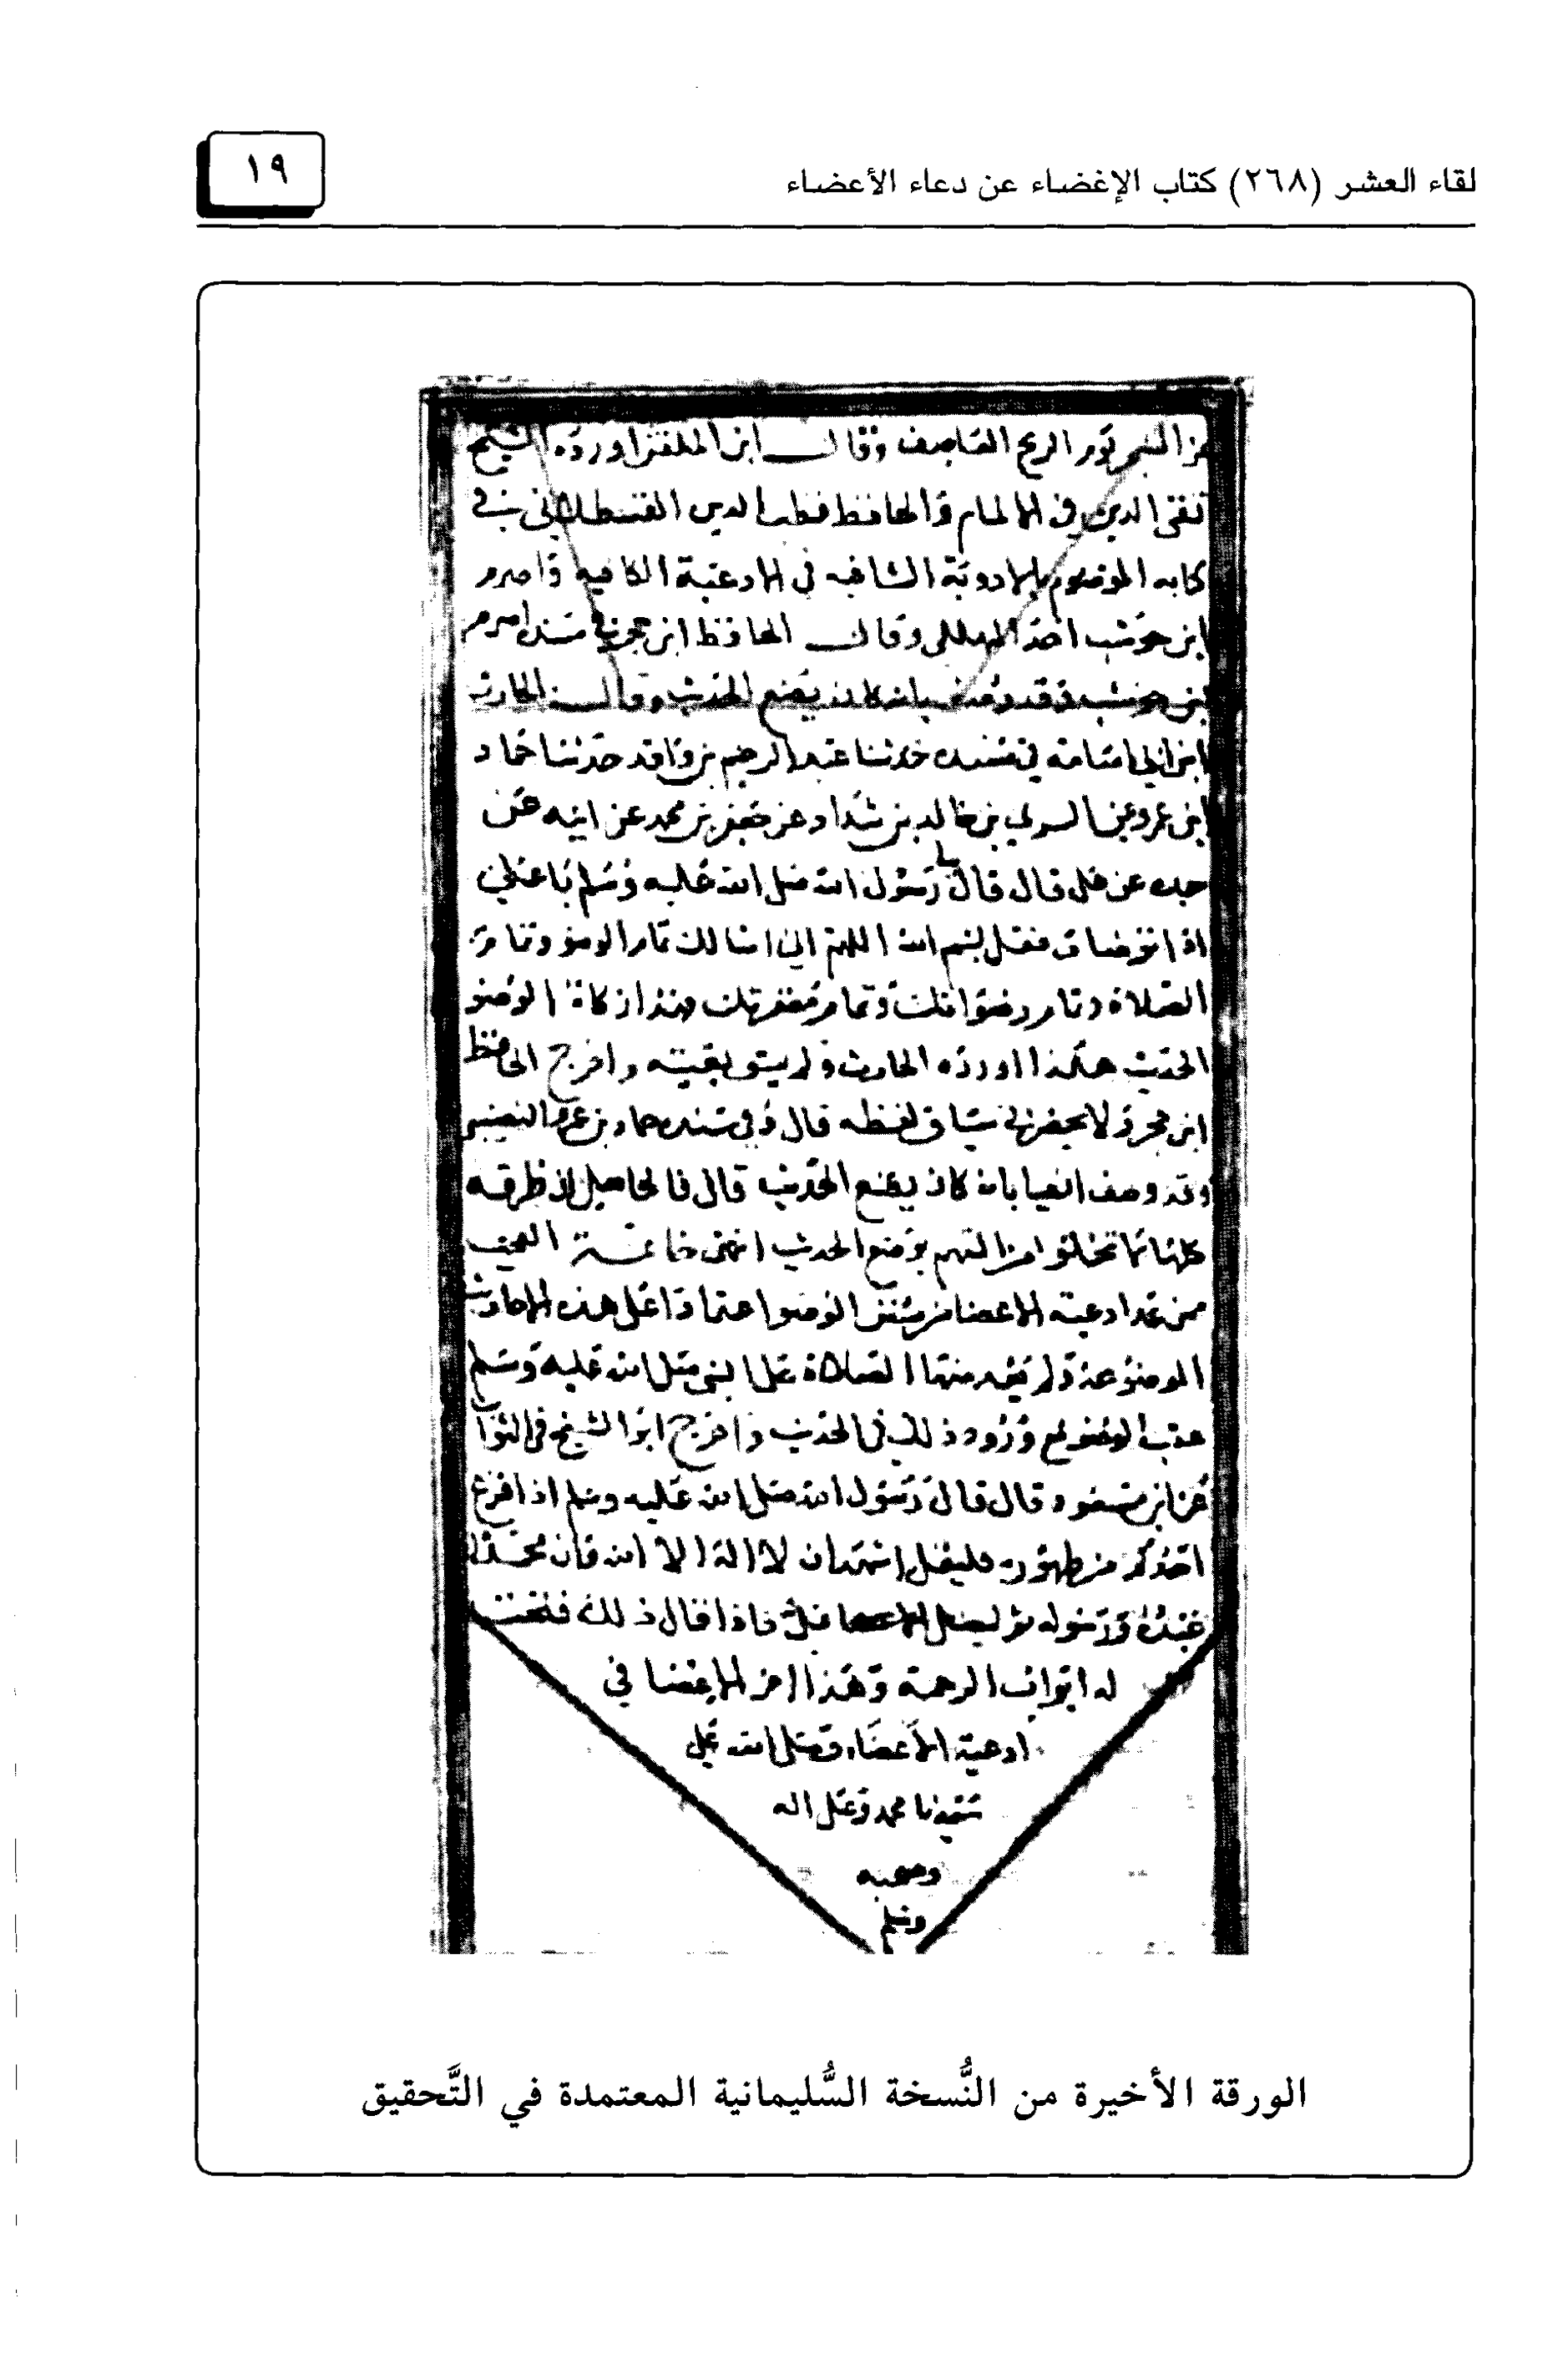 لقاء العشر (٢٦٨) كتاب الإغضاء عن دعاء الأعضاء
١٩
الشجر يوم الريح العاصف وقال ابن الملقن اورده الشيخ
تقي الدين في الالمام والحافظ قطب الدين القسطلاني في
كتابه الموسوم بالادوية الشافيه في الادعية الكافيه واصرم
ابن حوشب احد الهلكى وقال الحافظ ابن حجر في سنده اصرم
بن حوشب وقد وصف بانه كان يضع الحديث وقال الحارث
ابن ابي اسامة في مسنده حدثنا عبد الرحيم بن واقد حدثنا حماد
ابن عمرو عن السري بن خالد بن شداد عن جعفر بن محمد عن ابيه عن
جده عن علي قال قال لي رسول الله صلى الله عليه وسلم يا علي
اذا توضات فقل بسم الله اللهم اني اسالك تمام الوضو وتمام
الصلاة وتمام رضوانك وتمام مغفرتك فهذا زكاة الوضو
الحديث هكذا اورده الحارث ولم يسق بقيته واخرج الحافظ
ابن حجر ولا يحضرني سياق لفظه قال وفي سنده حماد بن عمرو النصيبي
وقد وصف ايضا بانه كان يضع الحديث قال فالحاصل ان طرقه
كلها لا تخلوا من التهم بوضع الحديث انتهى خاتمة العجب
ممن عد ادعية الاعضا من سنن الوضو اعتمادا على هذه الاحاديث
الموضوعة ولم يعد منها الصلاة على النبي صلى الله عليه وسلم
عقب الوضو مع ورود ذلك في الحديث واخرج ابو الشيخ في الثواب
عن ابن مسعود قال قال رسول الله صلى الله عليه وسلم اذا فرغ
احدكم من طهوره فليقل اشهد ان لا اله الا الله وان محمدا
عبده ورسوله ثم ليصل علي فاذا قال ذلك فتحت
له ابواب الرحمة وهذا اخر الاغضا في
ادعية الأعضاء وصلى الله على
سيدنا محمد وعلى اله
وصحبه
وسلم
الورقة الأخيرة من النُّسخة السُّليمانية المعتمدة في التَّحقيق